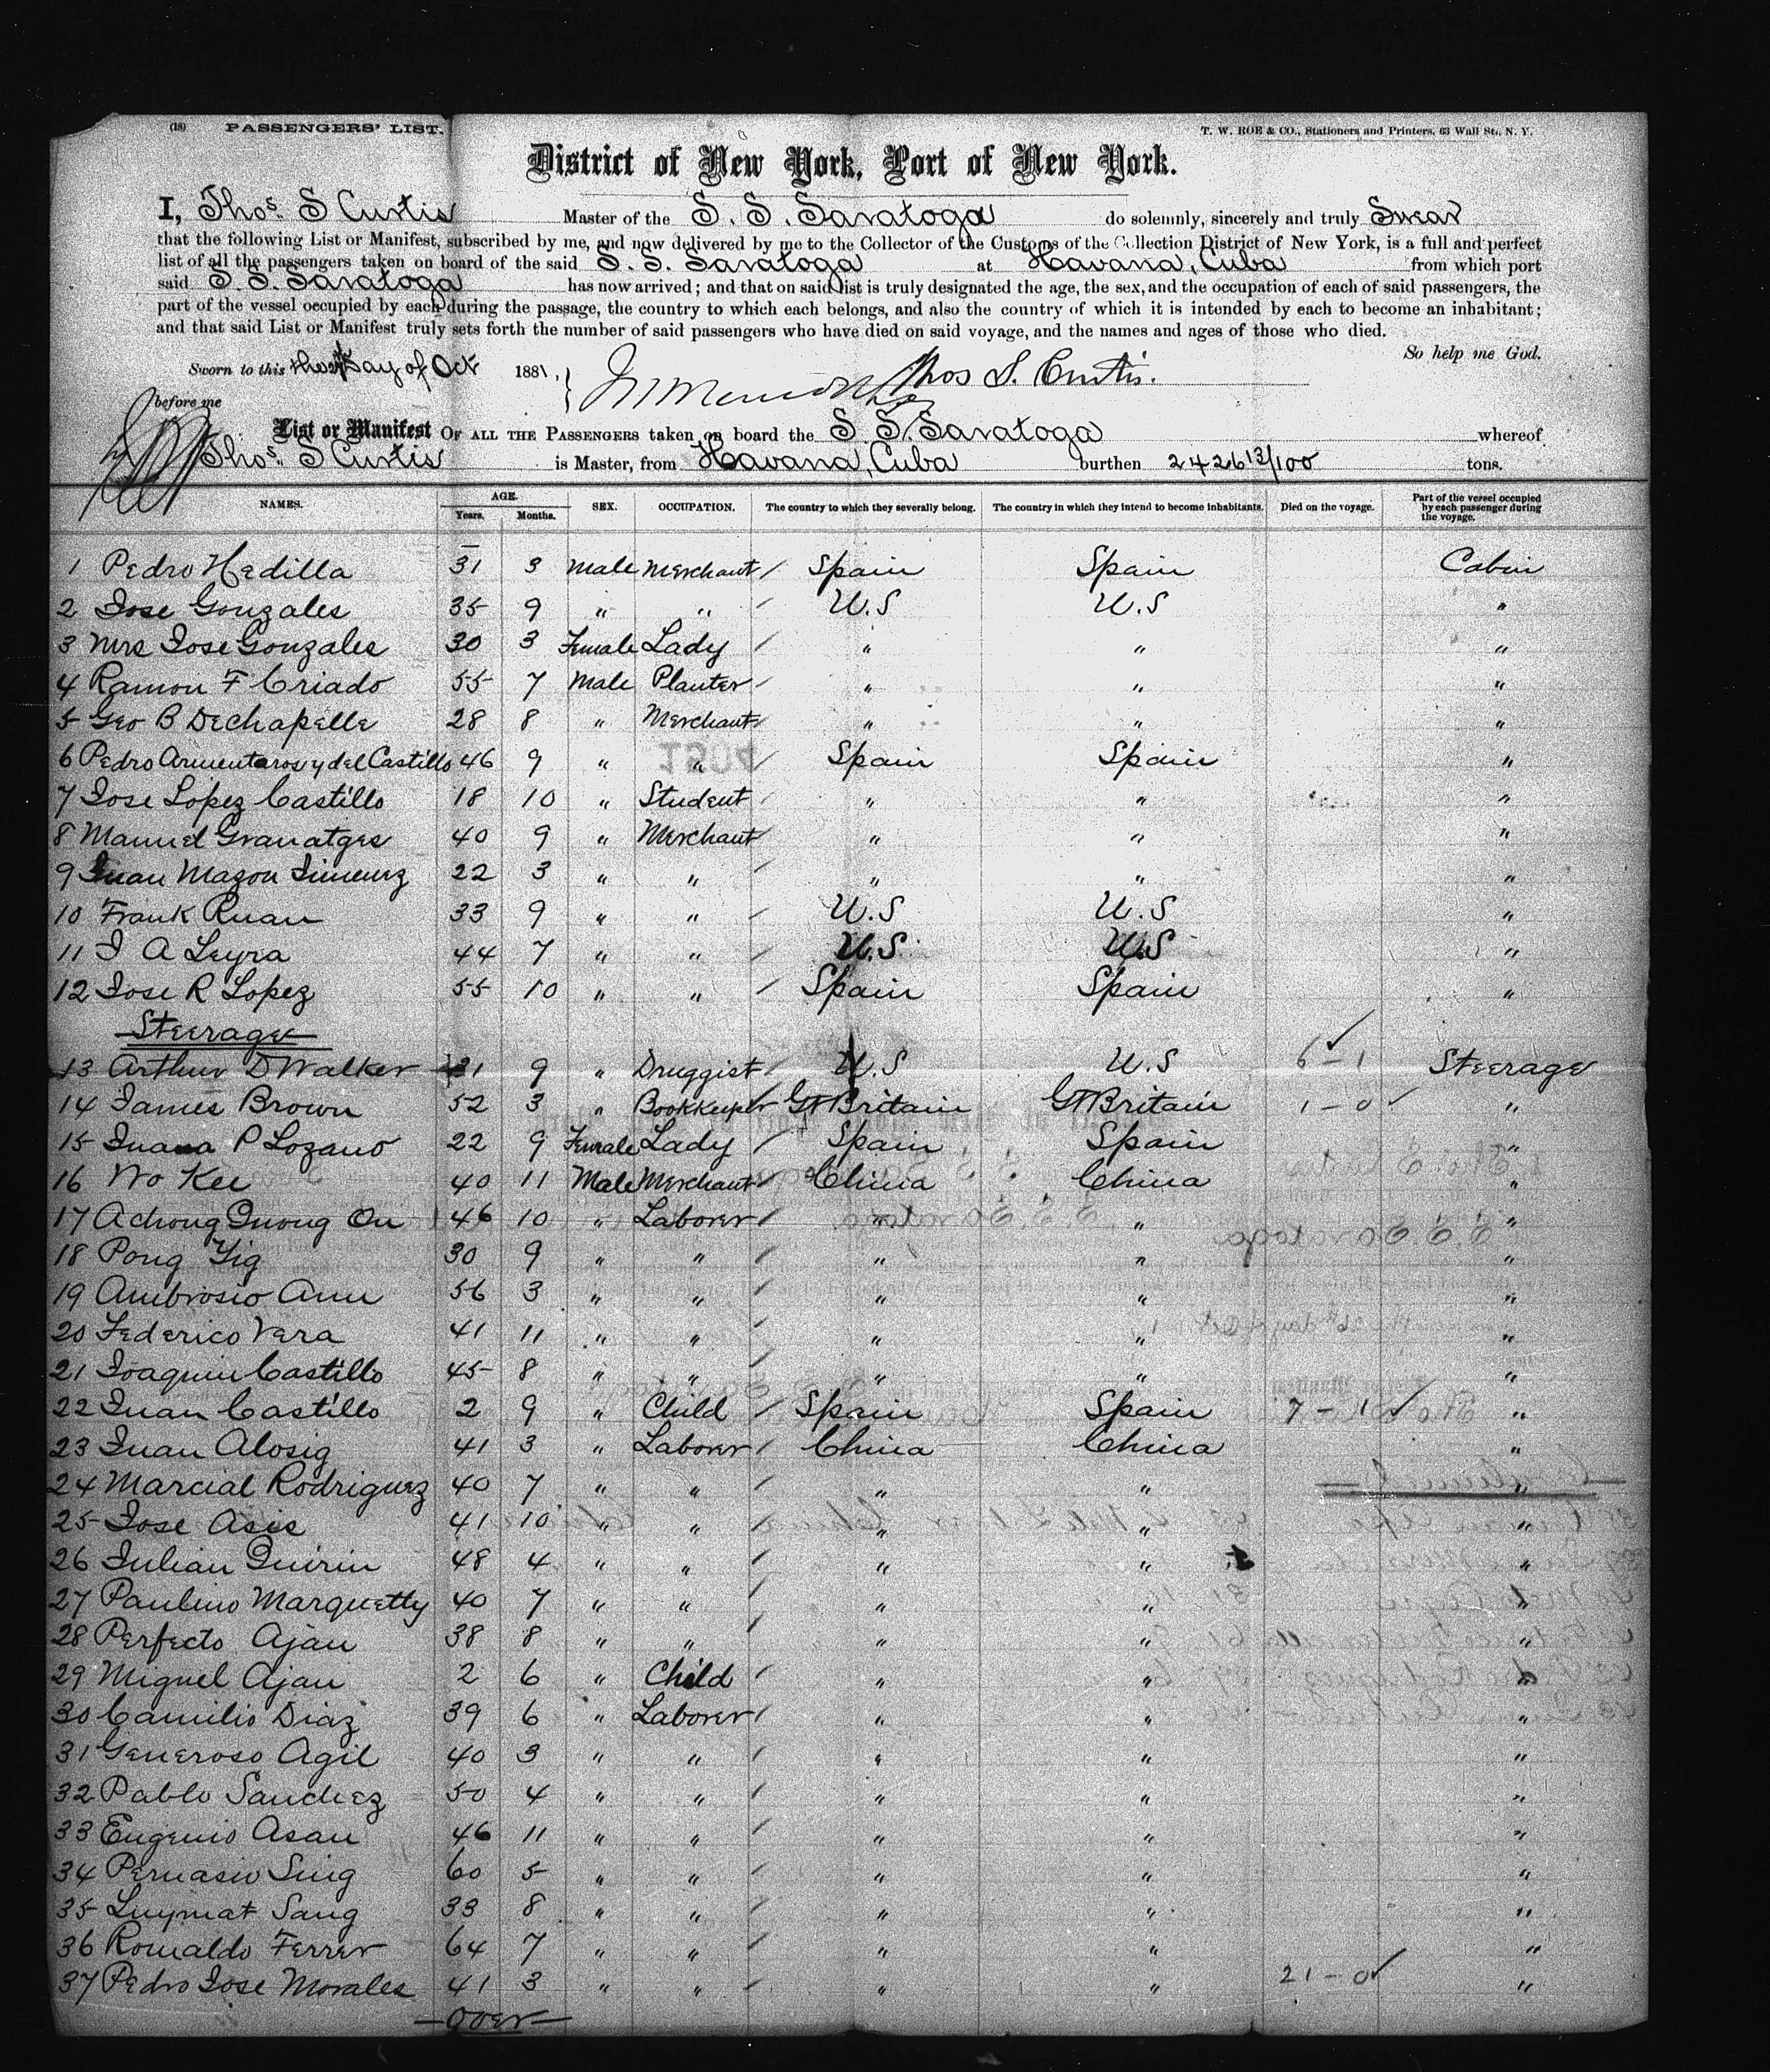 (18) PASSENGERS' LIST. T. W. ROE & CO., Stationers and Printers, 63 Wall St., N. Y.
District of New York, Port of New York.
I, Thos. S Curtis Master of the S. S. Saratoga do solemnly, sincerely and truly Swear
that the following List or Manifest, subscribed by me, and now delivered by me to the Collector of the Customs of the Collection District of New York, is a full and perfect
list of all the passengers taken on board of the said S. S. Saratoga at Havana, Cuba from which port
said S. S. Saratoga has now arrived; and that on said list is truly designated the age, the sex, and the occupation of each of said passengers, the
part of the vessel occupied by each during the passage, the country to which each belongs, and also the country of which it is intended by each to become an inhabitant;
and that said List or Manifest truly sets forth the number of said passengers who have died on said voyage, and the names and ages of those who died.
So help me God.
Sworn to this day of Oct 1881, Thos S. Curtis.
before me
List or Manifest OF ALL THE PASSENGERS taken on board the S. S. Saratoga whereof
Thos. S Curtis is Master, from Havana, Cuba burthen 2426 13/100 tons.
NAMES. AGE. Years. Months. SEX. OCCUPATION. The country to which they severally belong. The country in which they intend to become inhabitants. Died on the voyage. Part of the vessel occupied by each passenger during the voyage.
1 Pedro Hedilla 31 3 Male Merchant / Spain Spain Cabin
2 Jose Gonzales 35 9 " " / U.S U.S "
3 Mrs Jose Gonzales 30 3 Female Lady / " " "
4 Ramon F Criado 55 7 Male Planter / " " "
5 Geo B DeChapelle 28 8 " Merchant / " " "
6 Pedro Armentaros y del Castillo 46 9 " " Spain Spain "
7 Jose Lopez Castillo 18 10 " Student / " " "
8 Manuel Granatges 40 9 " Merchant / " " "
9 Juan Mazon Jimenez 22 3 " " / " " "
10 Frank Ruan 33 9 " " / U.S U.S "
11 J A Leyra 44 7 " " / U.S U.S "
12 Jose R Lopez 55 10 " " / Spain Spain "
Steerage
13 Arthur D Walker 21 9 " Druggist / U.S U.S 6 - 1 Steerage
14 James Brown 52 3 " Bookkeeper Gt Britain Gt Britain 1 - 0 "
15 Juana P Lozano 22 9 Female Lady / Spain Spain "
16 Wo Kee 40 11 Male Merchant / China China "
17 Achong Quong On 46 10 " Laborer / " " "
18 Pong Yig 30 9 " " / " " "
19 Ambrosio Ann 56 3 " " / " " "
20 Federico Vera 41 11 " " / " " "
21 Joaquin Castillo 45 8 " " / " " "
22 Juan Castillo 2 9 " Child / Spain Spain 7 - 1 "
23 Juan Alosig 41 3 " Laborer / China China "
24 Marcial Rodriguez 40 7 " " / " " "
25 Jose Asis 41 10 " " / " " "
26 Julian Quirin 48 4 " " / " " "
27 Paulino Marquetty 40 7 " " / " " "
28 Perfecto Ajan 38 8 " " / " " "
29 Miguel Ajan 2 6 " Child / " " "
30 Camilio Diaz 39 6 " Laborer / " " "
31 Generoso Agil 40 3 " " / " " "
32 Pablo Sanchez 50 4 " " / " " "
33 Eugenio Asan 46 11 " " / " " "
34 Pernasio Sing 60 5 " " / " " "
35 Luymat Sang 33 8 " " / " " "
36 Romaldo Ferrer 64 7 " " / " " "
37 Pedro Jose Morales 41 3 " " / " " 21 - 0 "
- over -